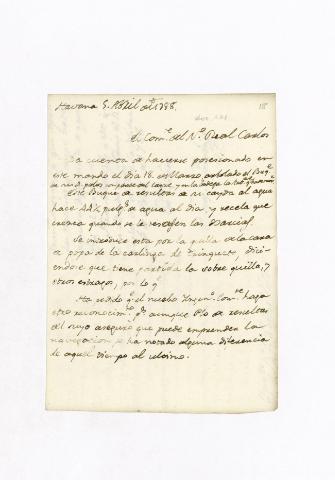 Havana 5. Abril de 1788.
18
El Com.te del N.o Real Carlos
Da cuenta de haverse posecionado en
este mando el dia 18. de Marzo
Este Buque de resultas de su cayda al agua
hace 44½ pulg.s de agua al dia, y recela que
crezca quando se le resequen las
Se introduce esta por la quilla de la cara
de popa de la carlinga de trinquete, dici-
endose que tiene partida la sobre quilla, y
otros estragos, por lo q.e
Ha pedido q.e el nuebo Ingen.o Com.te haga
otro reconocim.to q.e aunque P.o de resultas
del suyo asegura que puede emprender la
navegacion, se ha notado alguna diferencia
de aquel tiempo al ultimo.